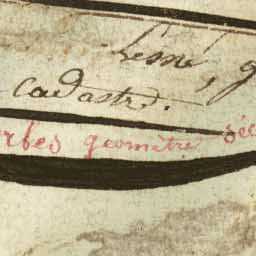 Lesné, g
cadastre.
erbes géomètre sec